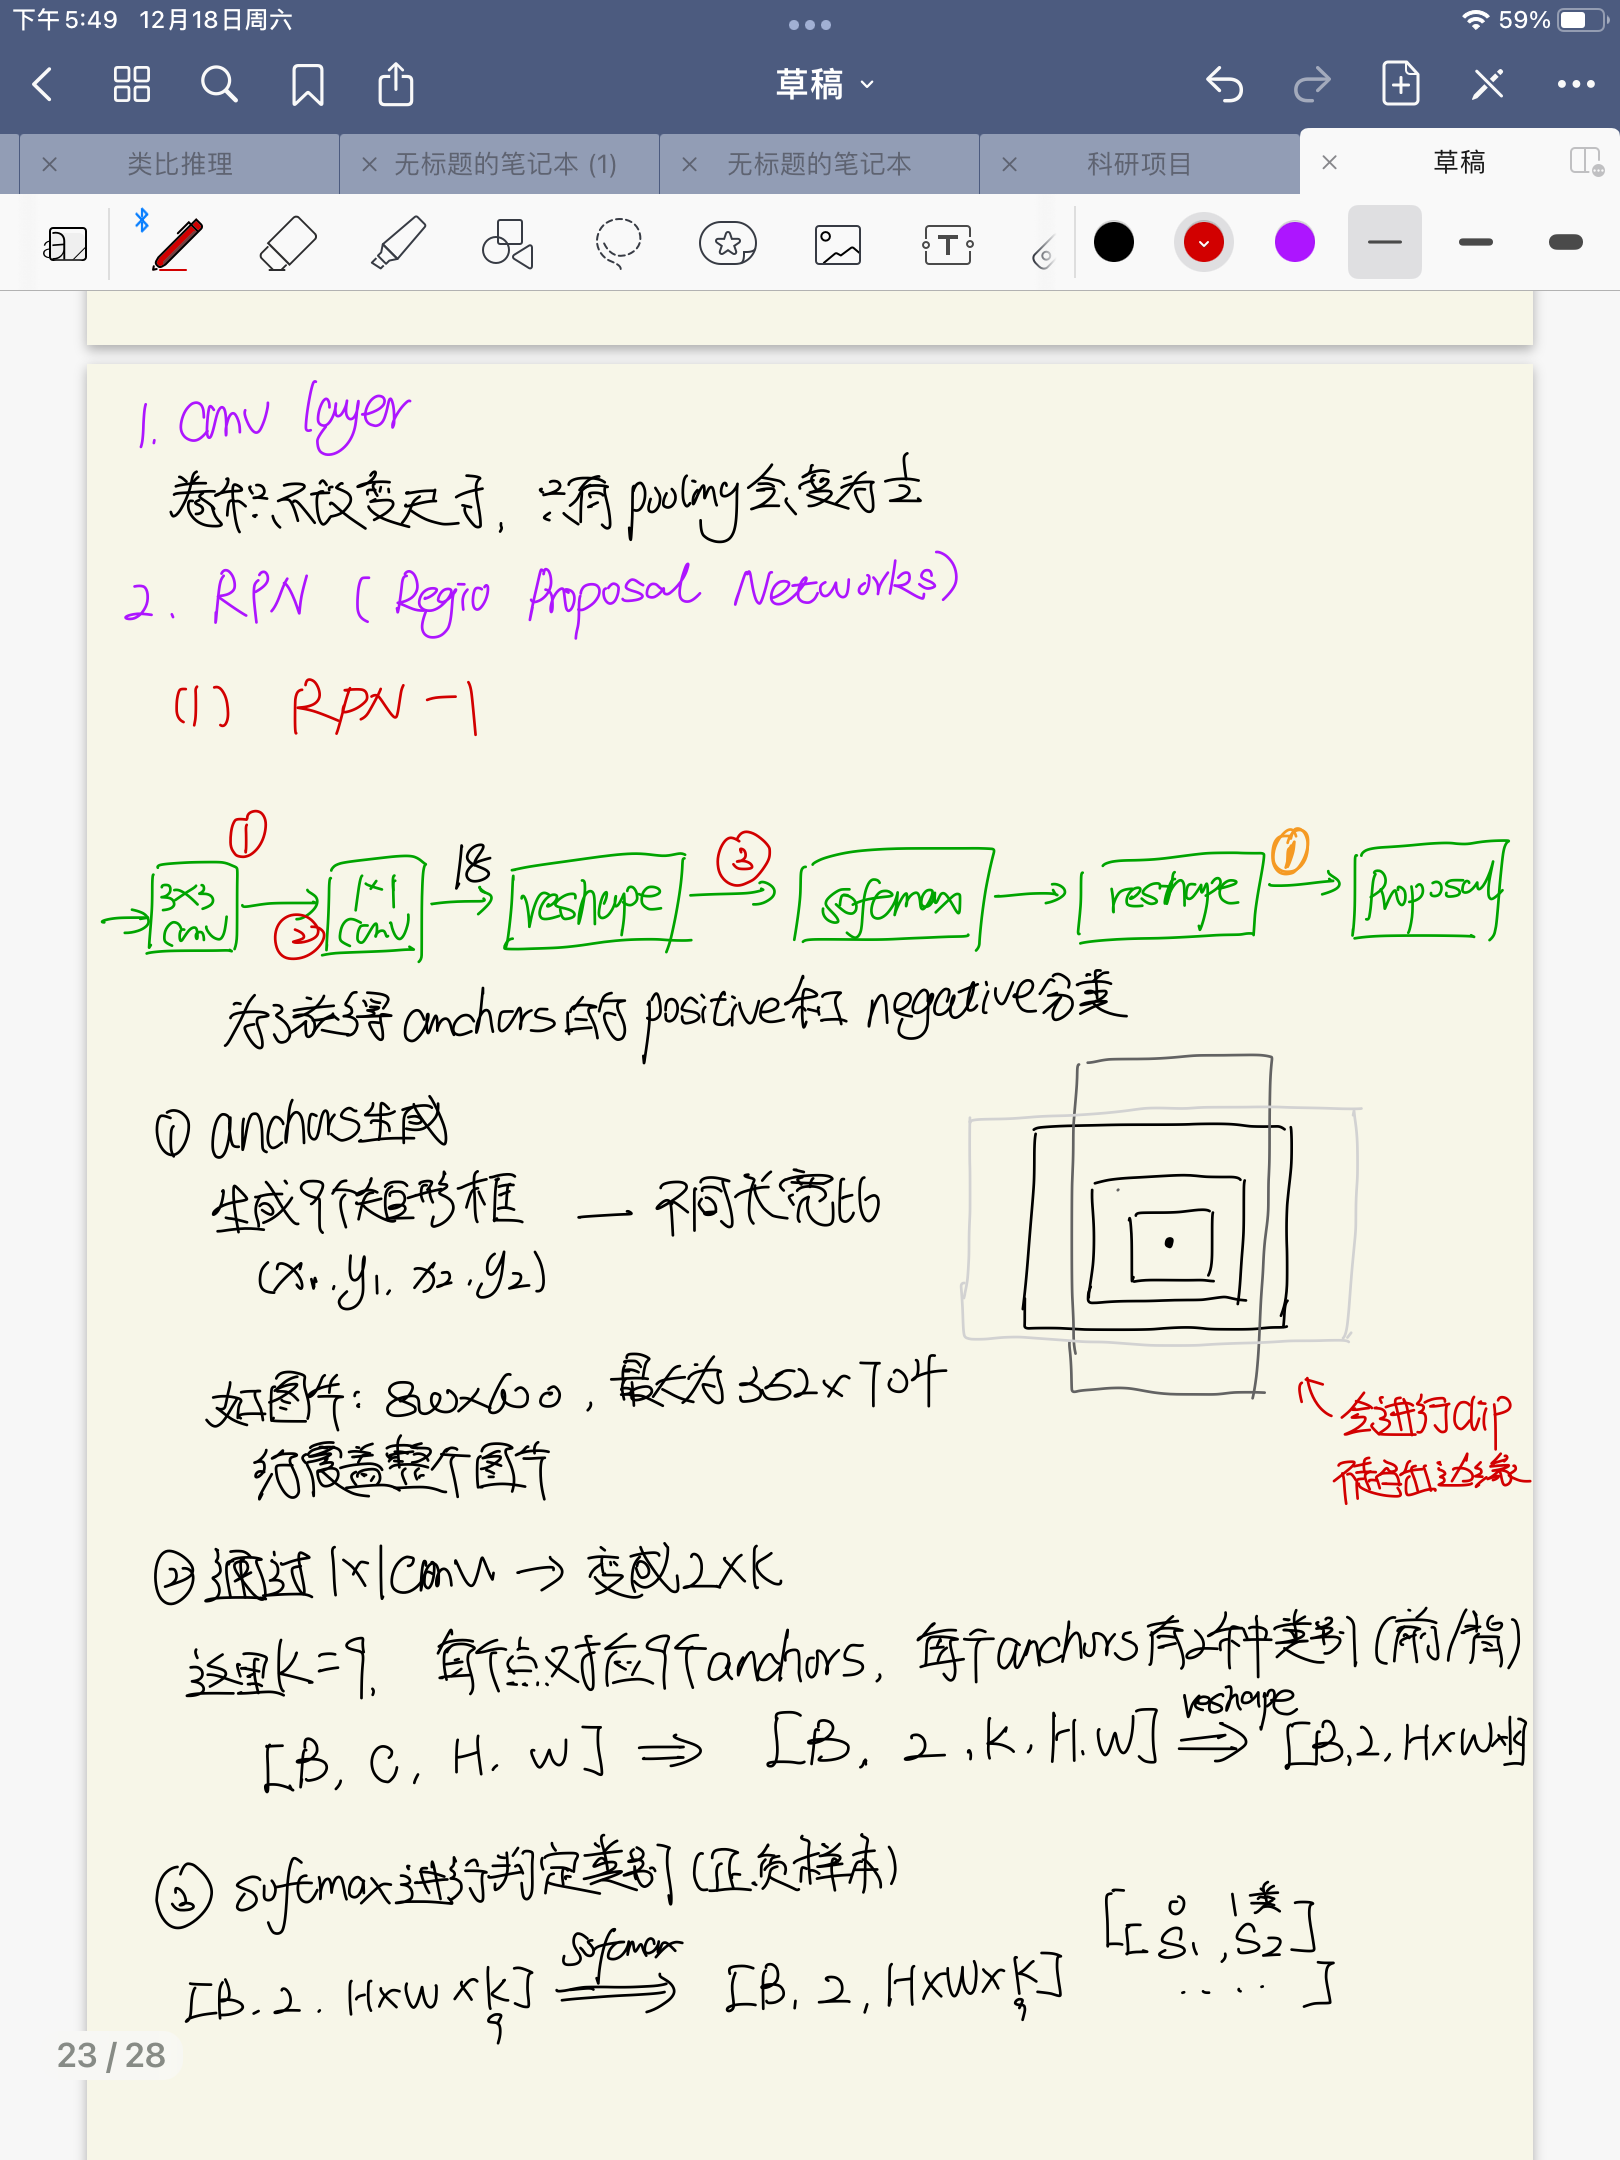 下午5:49 12月18日周六
59%
草稿
类比推理
无标题的笔记本 (1)
无标题的笔记本
科研项目
草稿
1. conv layer
卷积不改变尺寸，只有pooling会变为1/2
2. RPN (Regio Proposal Networks)
(1) RPN-1
① 18 ③ ①
3×3 conv ② 1×1 conv reshape softmax reshape Proposal
为了获得anchors的positive和negative分类
① anchors生成
生成9个矩形框 — 不同长宽比
(x1, y1, x2, y2)
如图片: 800×600, 最大为352×704
会进行clip
行覆盖整个图片
不超出边缘
② 通过1×1conv → 变成2×K
这里K=9, 每个点对应9个anchors, 每个anchors有2种类别(前/背)
[B, C, H, W] ⇒ [B, 2, K, H, W] reshape ⇒ [B, 2, H×W×K]
③ softmax进行判定类别(正负样本)
[B, 2, H×W×K] softmax ⇒ [B, 2, H×W×K]
9 9
0 1类
[[S1, S2]
....]
23 / 28